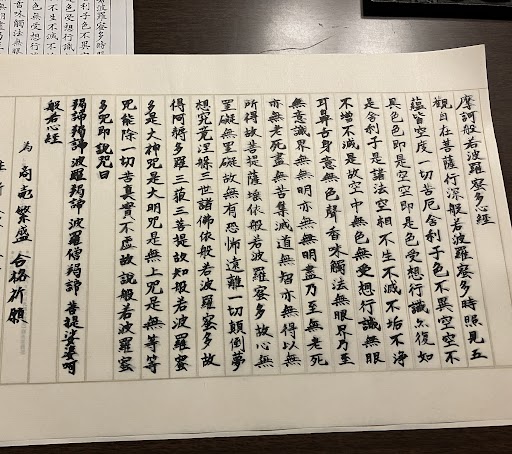 摩訶般若波羅蜜多心經
觀自在菩薩行深般若波羅蜜多時照見五
蘊皆空度一切苦厄舍利子色不異空空不
異色色即是空空即是色受想行識亦復如
是舍利子是諸法空相不生不滅不垢不淨
不增不減是故空中無色無受想行識無眼
耳鼻舌身意無色聲香味觸法無眼界乃至
無意識界無無明亦無無明盡乃至無老死
亦無老死盡無苦集滅道無智亦無得以無
所得故菩提薩埵依般若波羅蜜多故心無
罣礙無罣礙故無有恐怖遠離一切顛倒夢
想究竟涅槃三世諸佛依般若波羅蜜多故
得阿耨多羅三藐三菩提故知般若波羅蜜
多是大神咒是大明咒是無上咒是無等等
咒能除一切苦真實不虛故說般若波羅蜜
多咒即說咒曰
羯諦羯諦 波羅羯諦 波羅僧羯諦 菩提娑婆訶
般若心經
為 商売繁盛 合格祈願